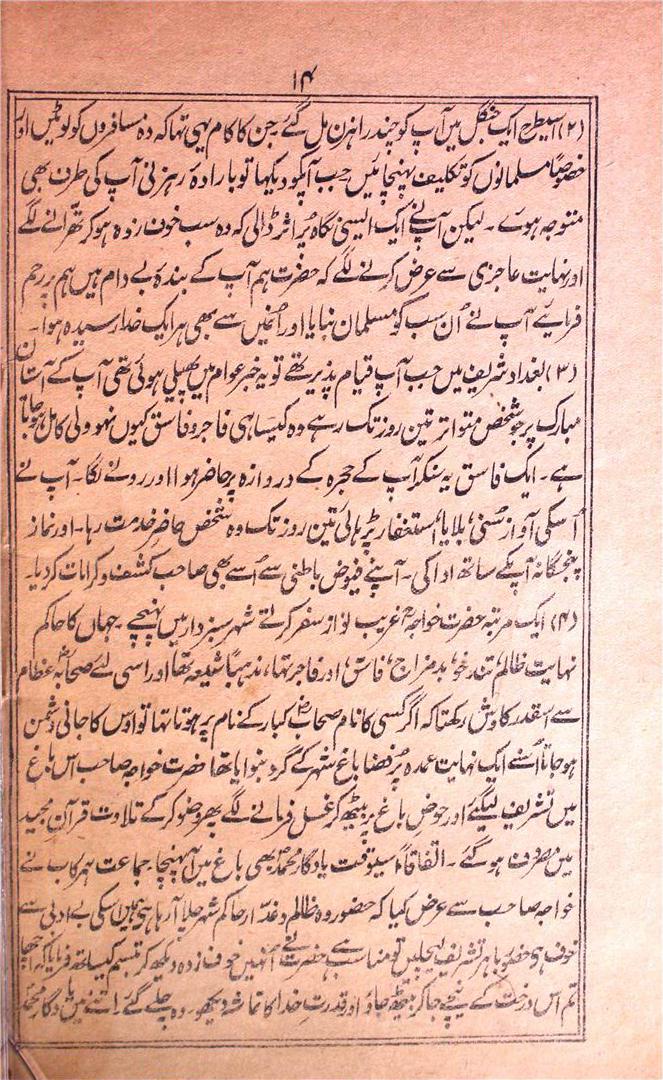 ۱۴
(۲) اسیطرح ایک جنگل میں آپ کو چند راہزن مل گئے جن کا کام یہی تہا کہ وہ مسافروں کو لوٹیں اور
خصوصاً مسلمانوں کو تکلیف پہنچائیں جب آپکو دیکھا تو بارادہ رہزنی آپ کی طرف بھی
متوجہ ہوے ۔ لیکن آپ نے ایک ایسی نگاہ پُر اثر ڈالی کہ وہ سب خوف زدہ ہوکر تھرانے لگے
اور نہایت عاجزی سے عرض کرنے لگے کہ حضرت ہم آپ کے بندۂ بے دام ہیں ہم پر رحم
فرمائیے آپ نے اُن سب کو مسلمان بنایا اور اُنمیں سے بھی ہر ایک خدا رسیدہ ہوا۔
(۳) بغداد شریف میں جب آپ قیام پذیر تھے تو یہ خبر عوام میں پھیلی ہوئی تھی آپ کے آستان
مبارک پر جو شخص متواتر تین روز تک رہے وہ کیسا ہی فاجر و فاسق کیوں نہو ولی کامل ہوجاتا
ہے۔ ایک فاسق یہ سنکر آپ کے حجرہ کے دروازہ پر حاضر ہوا اور رونے لگا۔ آپ نے
اُسکی آواز سُنی، بلایا، استغفار پڑہائی تین روز تک وہ شخص حاضر خدمت رہا۔ اور نماز
پنجگانہ آپکے ساتھ ادا کی۔ آپنے فیوض باطنی سے اُسے بھی صاحب کشف و کرامات کردیا۔
(۴) ایک مرتبہ حضرت خواجہ غریب نواز سفر کرتے شہر سبزدار میں پہنچے۔ جہاں کا حاکم
نہایت ظالم، تندخو، بدمزاج، فاسق، اور فاجر تہا، مذہباً شیعہ تھا اور اسی لئے صحابۂ عظام
سے اسقدر کاوش رکھتا کہ اگر کسی کا نام صحابۂ کبار کے نام پر ہوتا تہا تو اوس کا جانی دشمن
ہوجاتا اُسنے ایک نہایت عمدہ پُر فضا باغ شہر کے گرد بنوایا تھا حضرت خواجہ صاحب اس باغ
میں تشریف لیگئے اور حوض باغ پر بیٹھ کر غسل فرمانے لگے پھر وضو کر کے تلاوت قرآن مجید
میں مصروف ہو گئے ۔ اتفاقاً اُسیوقت یادگار محمد بھی باغ میں آ پہنچا۔ جماعت ہمرکاب نے
خواجہ صاحب سے عرض کیا کہ حضور وہ ظالم و غدّار حاکم شہر چلا آ رہا ہے ہمیں اسکی بے ادبی سے
خوف ہے حضور باہر تشریف لیچلیں تو مناسب ہے حضرت نے اُنہیں خوف زدہ دیکھ کر تبسم کیساتھ فرمایا کہ اچھا
تم اس درخت کے نیچے جا کر بیٹھ جاؤ اور قدرت خدا کا تماشہ دیکھو۔ وہ چلے گئے۔ اتنے میں یادگار محمد